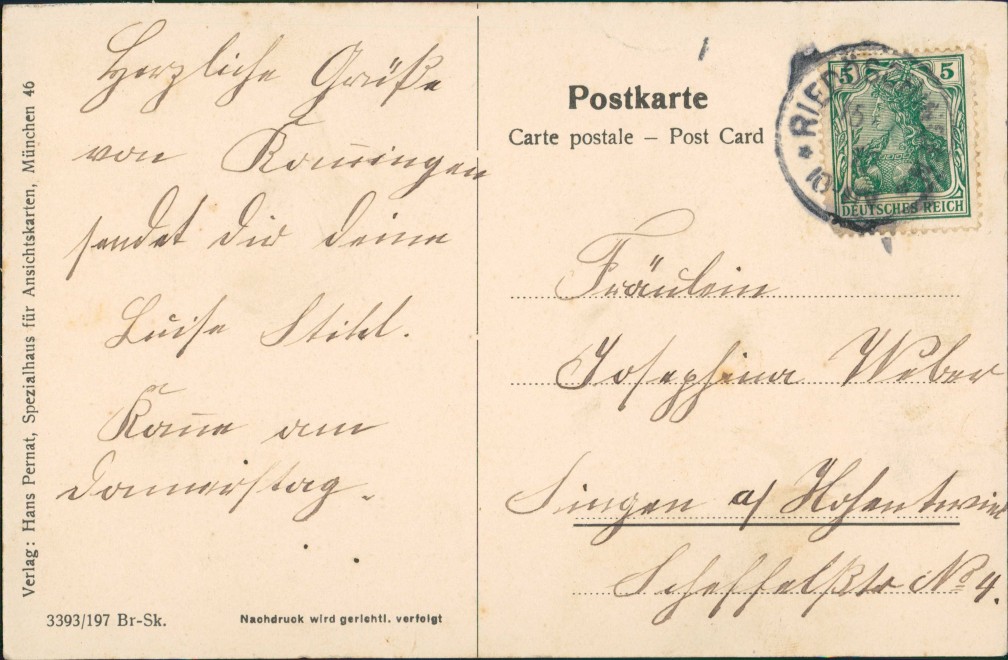 Verlag: Hans Pernat, Spezialhaus für Ansichtskarten, München 46
Herzliche Grüße
von
sendet dir deine
Luise
Kom̅e am
Donnerstag.
3393/197 Br-Sk.
Nachdruck wird gerichtl. verfolgt
Postkarte
Carte postale – Post Card
RIED
5 5
DEUTSCHES REICH
Fräulein
Josephina Weber
Singen a/ Hohentwiel
Scheffelstr No 4.